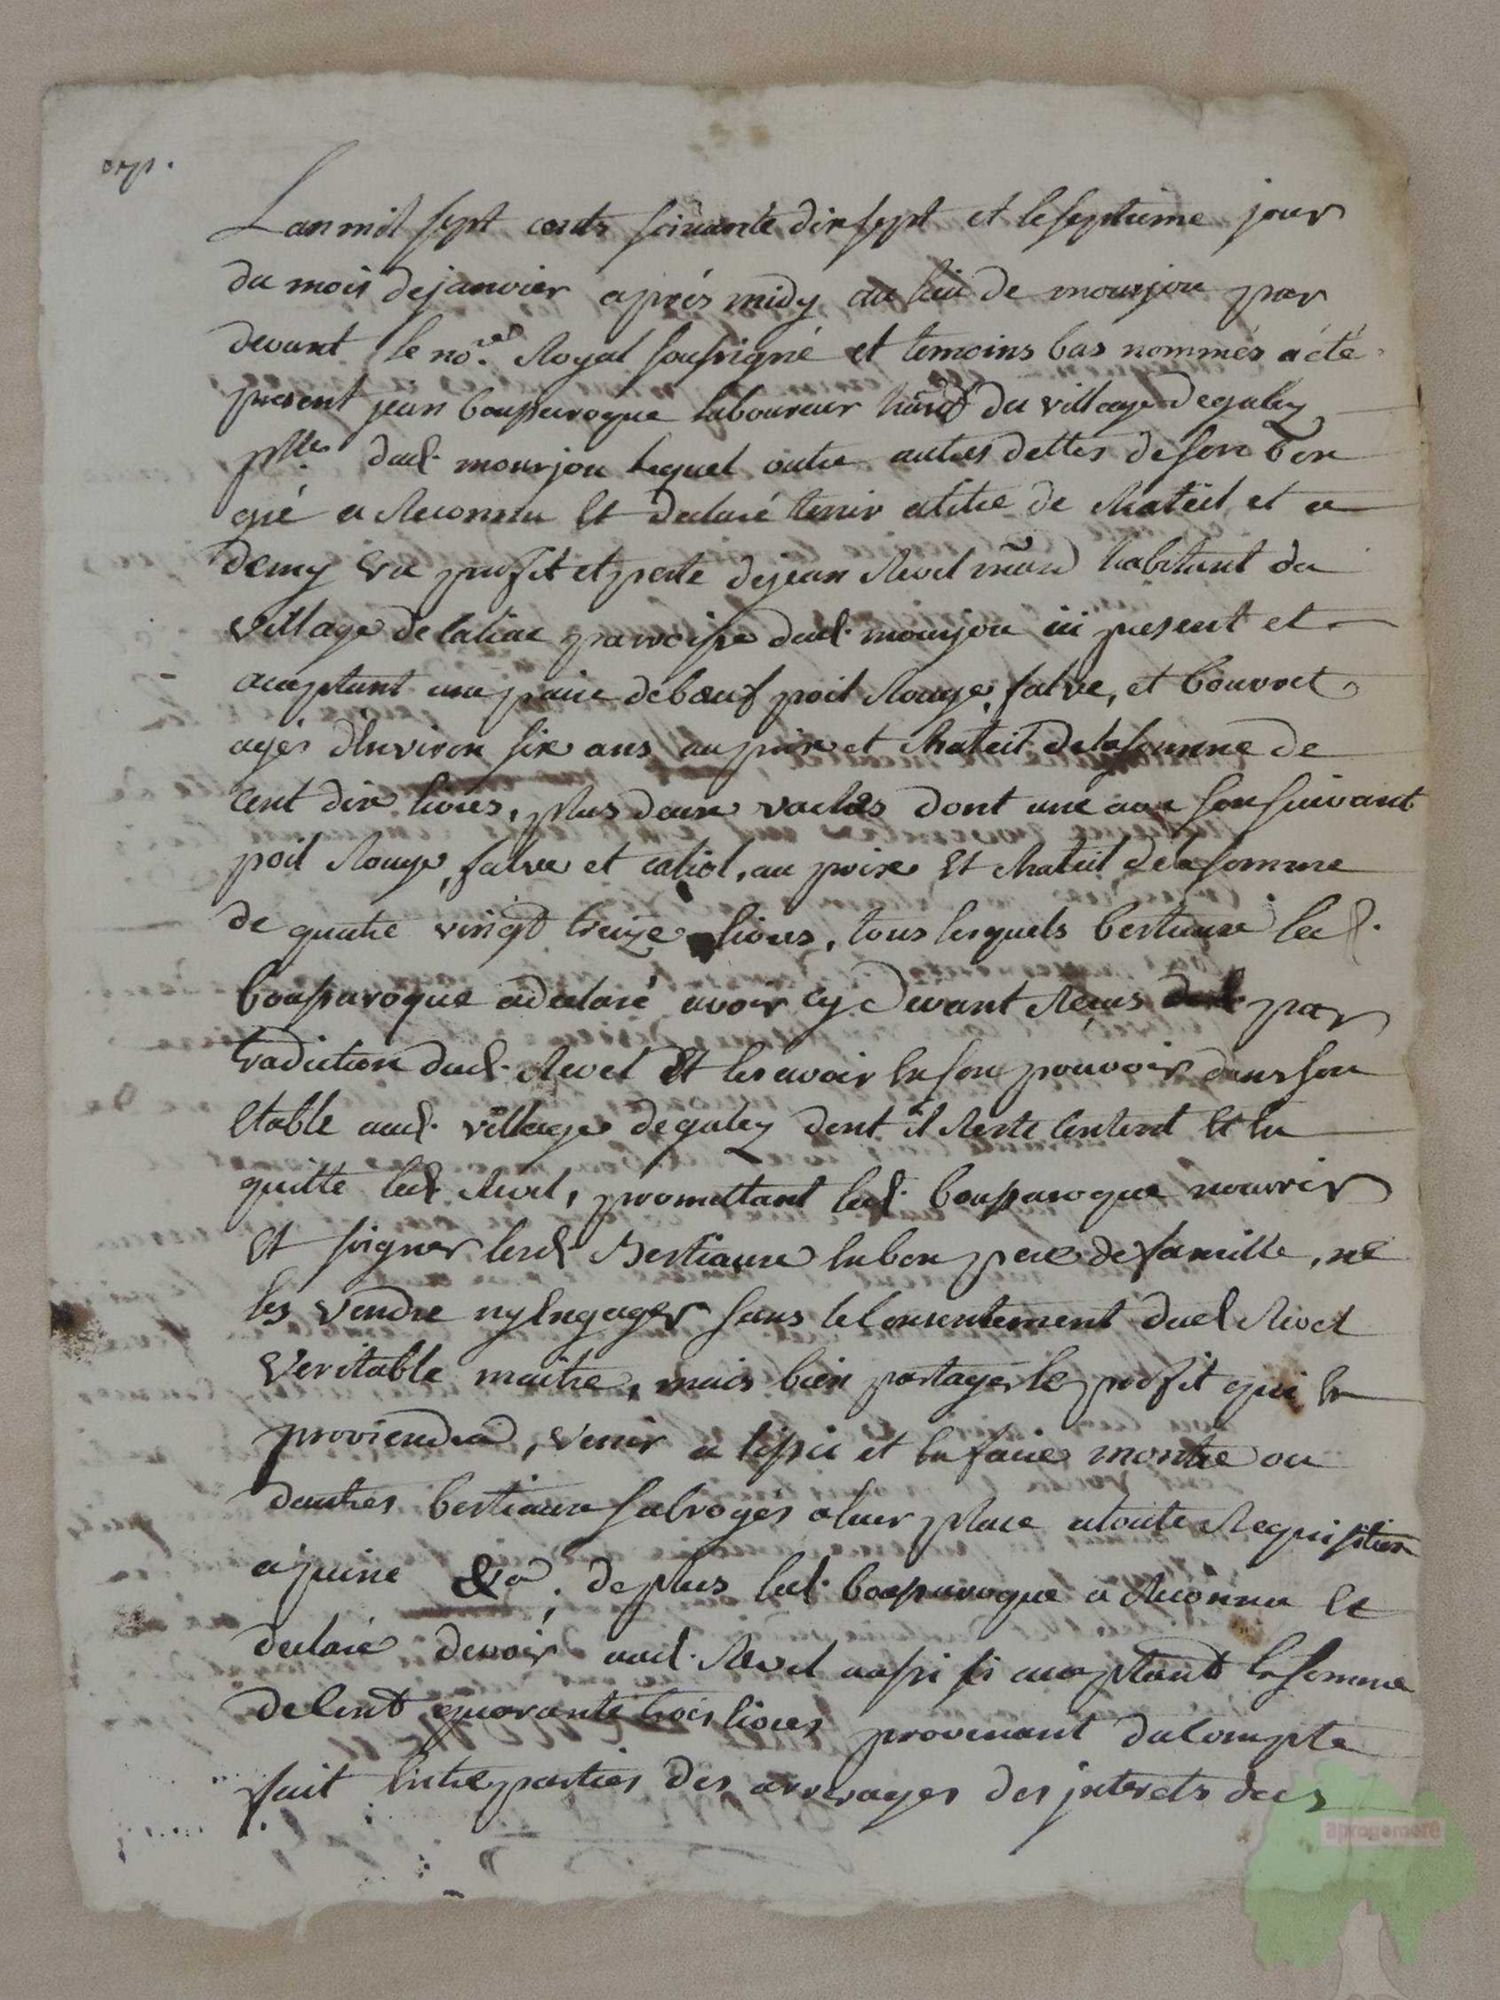 exp.
Lan mil sept cents soixante dix sept et le septieme jour
du mois de janvier après midy au lieu de mourjou par
devant le no.re Royal soussigné et temoins bas nommés a été
present jean bousparoque laboureur du village de galey
p.sse dud. mourjou lequel outre autres dettes de son bon
gré a Reconnu Et declaré tenir a titre de Chateil et a
demy Cru profit et perte de jean Revel habitant du
village de latiac paroisse dud. mourjou ici present et
acceptant une paire de bœuf poil Rouge, falve, et bouvret
agés d'Environ six ans au prix et Chateil de la somme de
cent dix livres, plus deux vaches dont une avec son suivant
poil Rouge, falve et caliol, au prix Et Chateil de la somme
de quatre vingt treize livres, tous lesquels bestiaux led.
bousparoque a declaré avoir cy devant Reçus par
tradiction dud. Revel Et les avoir En son pouvoir dans son
Etable aud. village de galey dont il Reste Content Et En
quitte led. Revel, promettant led. bousparoque nourrir
Et soigner lesd. Bestiaux En bon pere de famille, ne
les vendre ny Engager sans le Consentement dud. Revel
Veritable maitre, mais bien partager le profit qui En
proviendra, venir a et En faire montre ou
dautres bestiaux a leur place a toute Requisition
a peine &a, de plus led. bousparoque a Reconnu Et
declaré devoir aud. Revel aussi si acceptant la somme
de Cent quarante trois livres provenant du Compte
fait Entre parties des arrerages des jnterets des
aprogemere